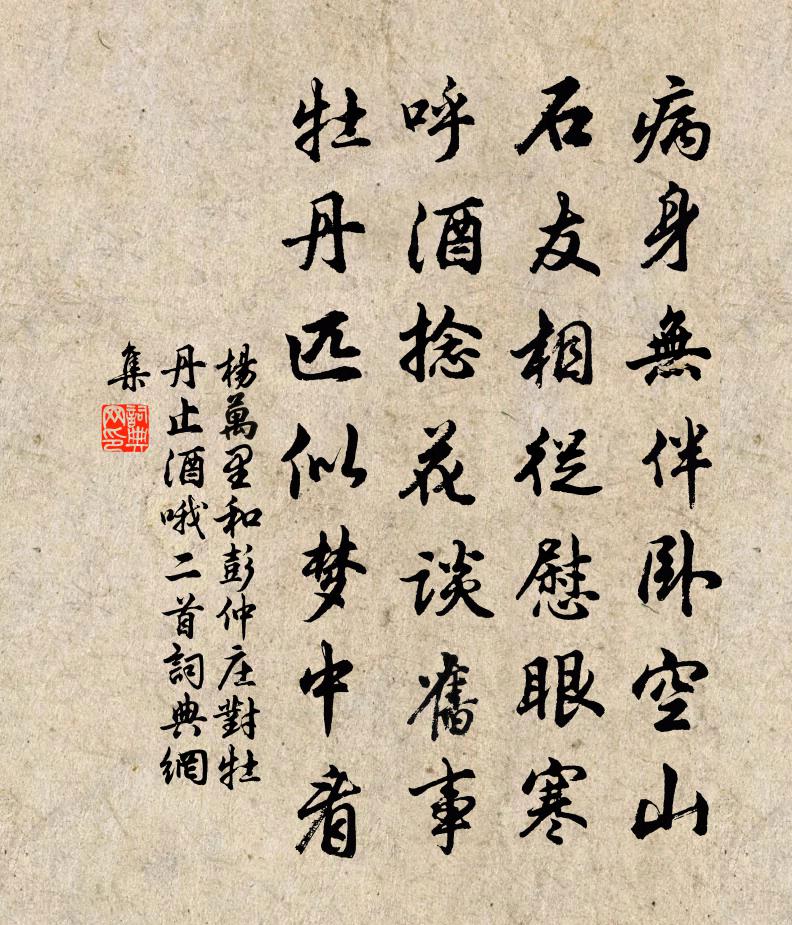 病身無伴卧空山
石友相從慰眼寒
呼酒捻花談舊事
牡丹匹似梦中看
楊萬里和彭仲庄對牡
丹止酒哦二首詞典網
集
詞典
网印